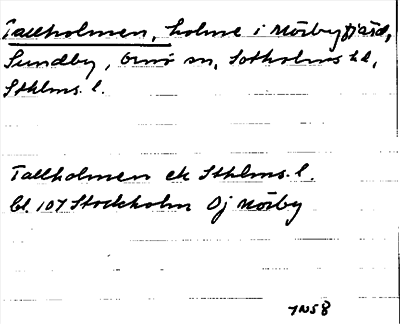 Tallholmen, holme i Mörbyfjärd,
Sundby, Ornö sn, Sotholms hd,
Sthlms. l.
Tallholmen ek Sthlms. l.
bl. 107 Stockholm Oj Mörby
1N58